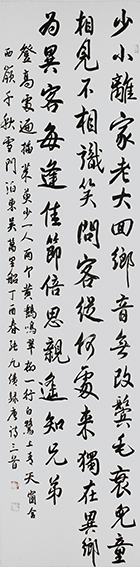 少小離家老大回鄉音無改鬢毛衰兒童
相見不相識笑問客從何處來獨在異鄉
為異客每逢佳節倍思親遙知兄弟
登高處遍插茱萸少一人兩个黃鸝鳴翠柳一行白鷺上青天窗含
西嶺千秋雪門泊東吳萬里船丁酉春唐詩三首